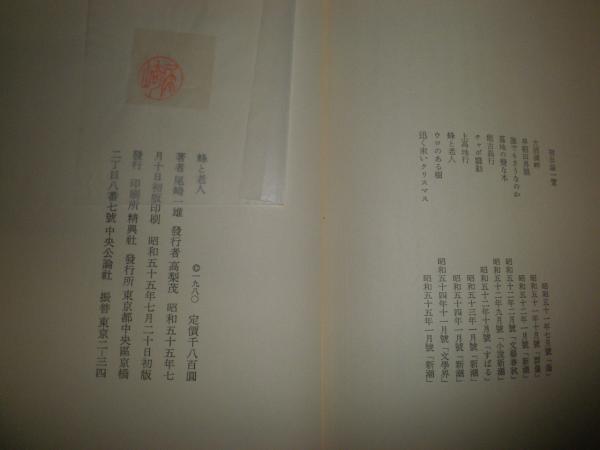 初出誌一覧
早稲田界隈
誰でもさうなのか
墓地の發な木
能古島行
チャボ騒動
上高地行
蜂と老人
ウロのある樹
退く來いクリスマス
昭和五十一年七月號「海」
昭和五十一年十月號「群像」
昭和五十二年一月號「新潮」
昭和五十二年二月號「文藝春秋」
昭和五十二年九月號「小説新潮」
昭和五十二年十月號「すばる」
昭和五十三年一月號「新潮」
昭和五十四年一月號「新潮」
昭和五十四年十一月號「文學界」
昭和五十五年一月號「新潮」
蜂と老人
©一九八〇 定價千八百圓
著者 尾崎一雄 發行者 高梨茂 昭和五十五年七
月十日初版印刷 昭和五十五年七月二十日初版
發行 印刷所 精興社 發行所 東京都中央區京橋
二丁目八番七號 中央公論社 振替 東京二-三四